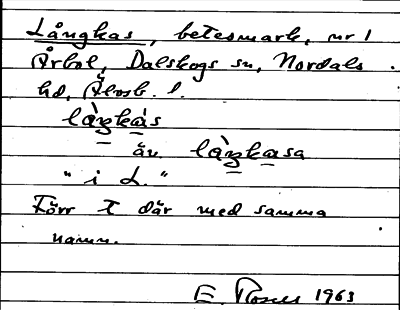 Långkas, betesmark, nr 1
Årbol, Dalskogs sn, Nordals
hd, Älvsb. l.
làŋkás
äv. làŋkasa
"i L."
Förr T där med samma
namn.
E. Rosell 1963